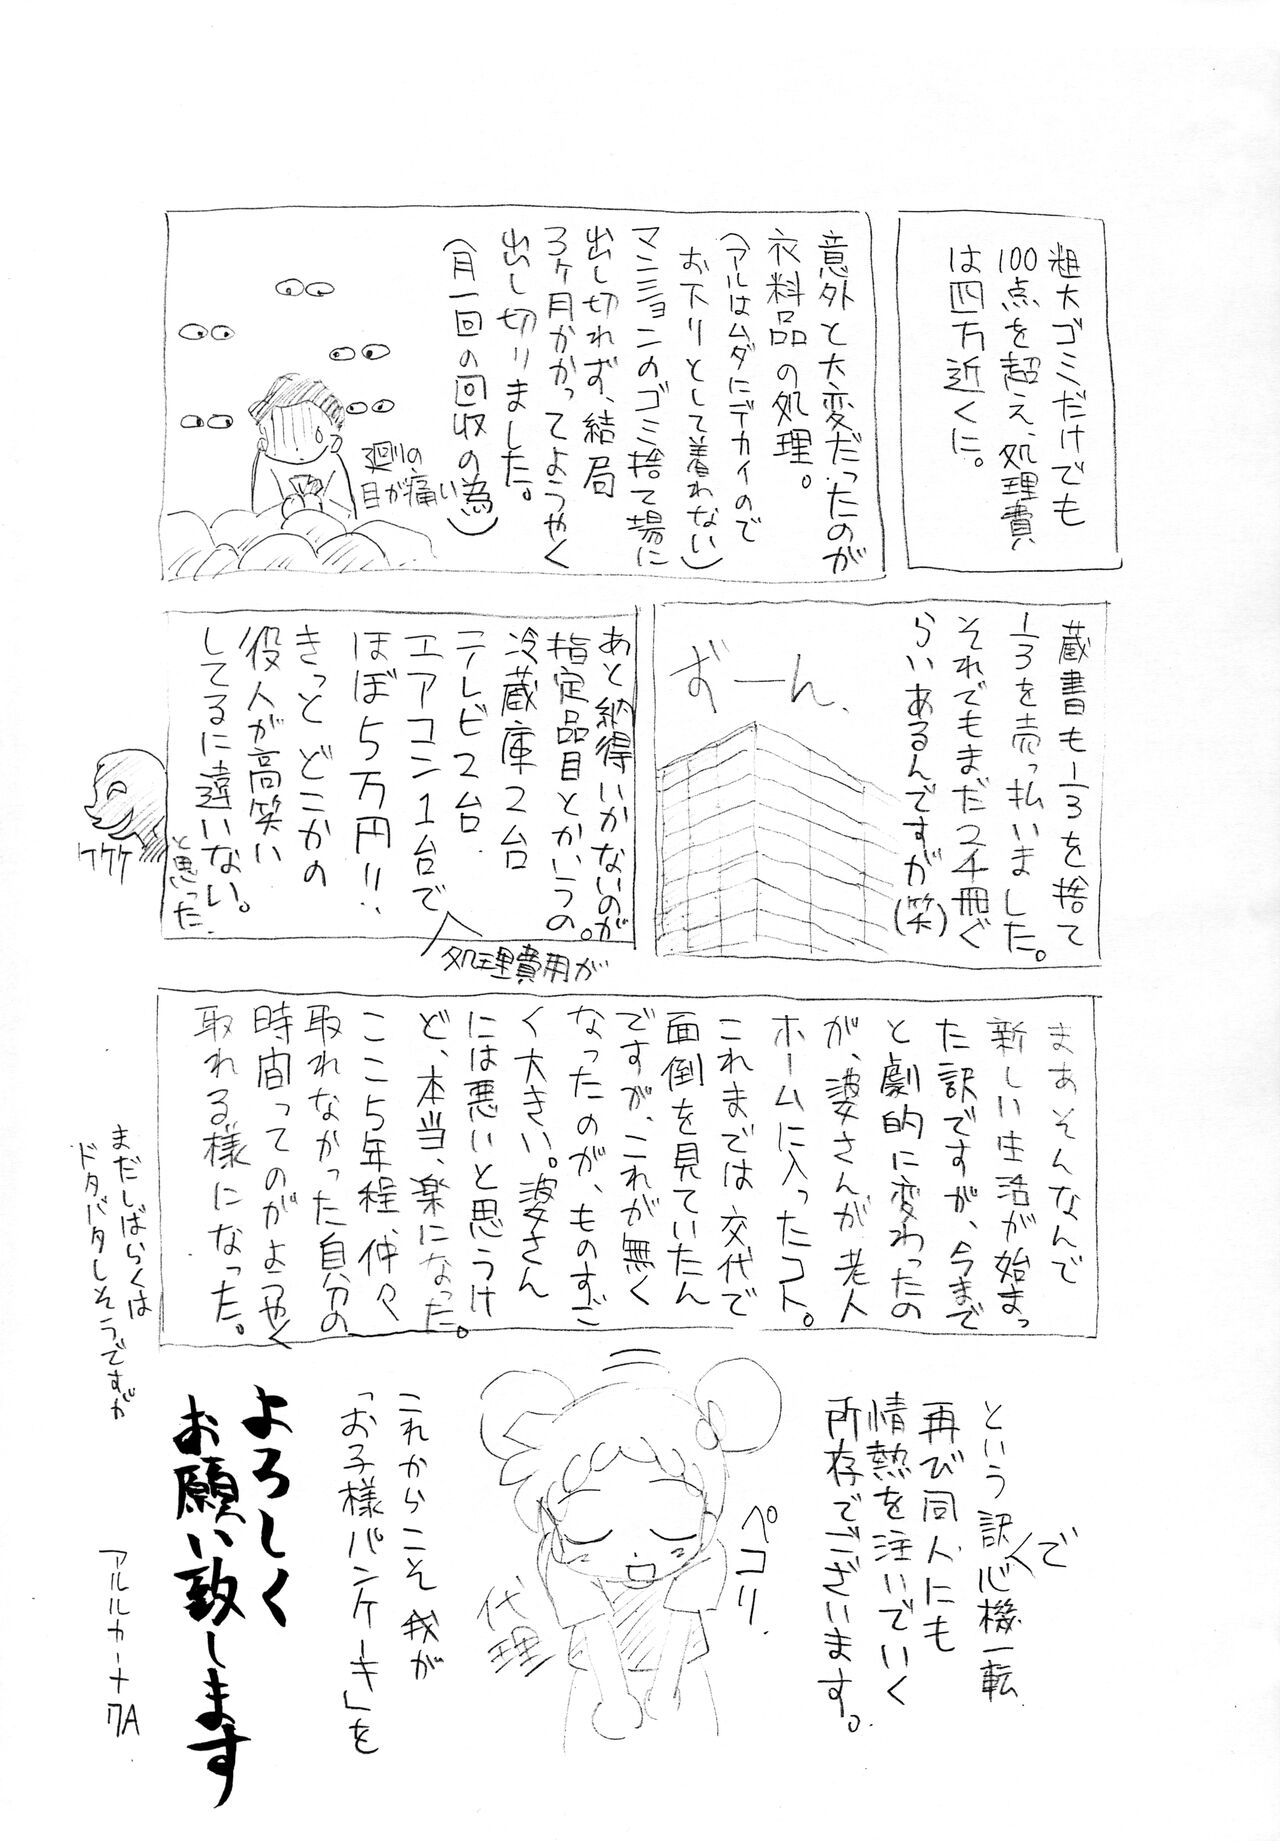 粗大ゴミだけでも
100点を超え、処理費
は四万近くに。
意外と大変だったのが
衣料品の処理。
(アルはムダにデカイので
お下リとして着わない)
マンションのゴミ捨て場に
出し切れず、結局
3ヶ月かかってようやく
出し切りました。
(月一回の回収の為)
廻りの
目が痛い
蔵書も1/3を捨て
1/3を売っ払いました。
それでもまだ2千冊ぐ
らいあるんですが(笑)
ずーん、
あと納得いかないのが
指定品目とかいうの。
冷蔵庫2台
テレビ2台
エアコン1台で
処理費用が
ほぼ5万円!!
きっとどこかの
役人が高笑い
してるに違いない。
と思った。
ケケケ
まあそんなんで
新しい生活が始まっ
た訳ですが、今まで
と劇的に変わったの
が、婆さんが老人
ホームに入ったコト。
これまでは交代で
面倒を見ていたん
ですが、これが無く
なったのが、ものすご
く大きい。婆さん
には悪いと思うけ
ど、本当、楽になった。
ここ5年程、仲々
取れなかった自分の
時間ってのがようやく
取れる様になった。
まだしばらくは
ドタバタしそうですが
という訳で心機一転
再び同人にも
情熱を注いでいく
所存でございます。
ペコリ.
代理
これからこそ我が
「お子様パンケーキ」を
よろしく
お願い致します
アルルカーナ7A